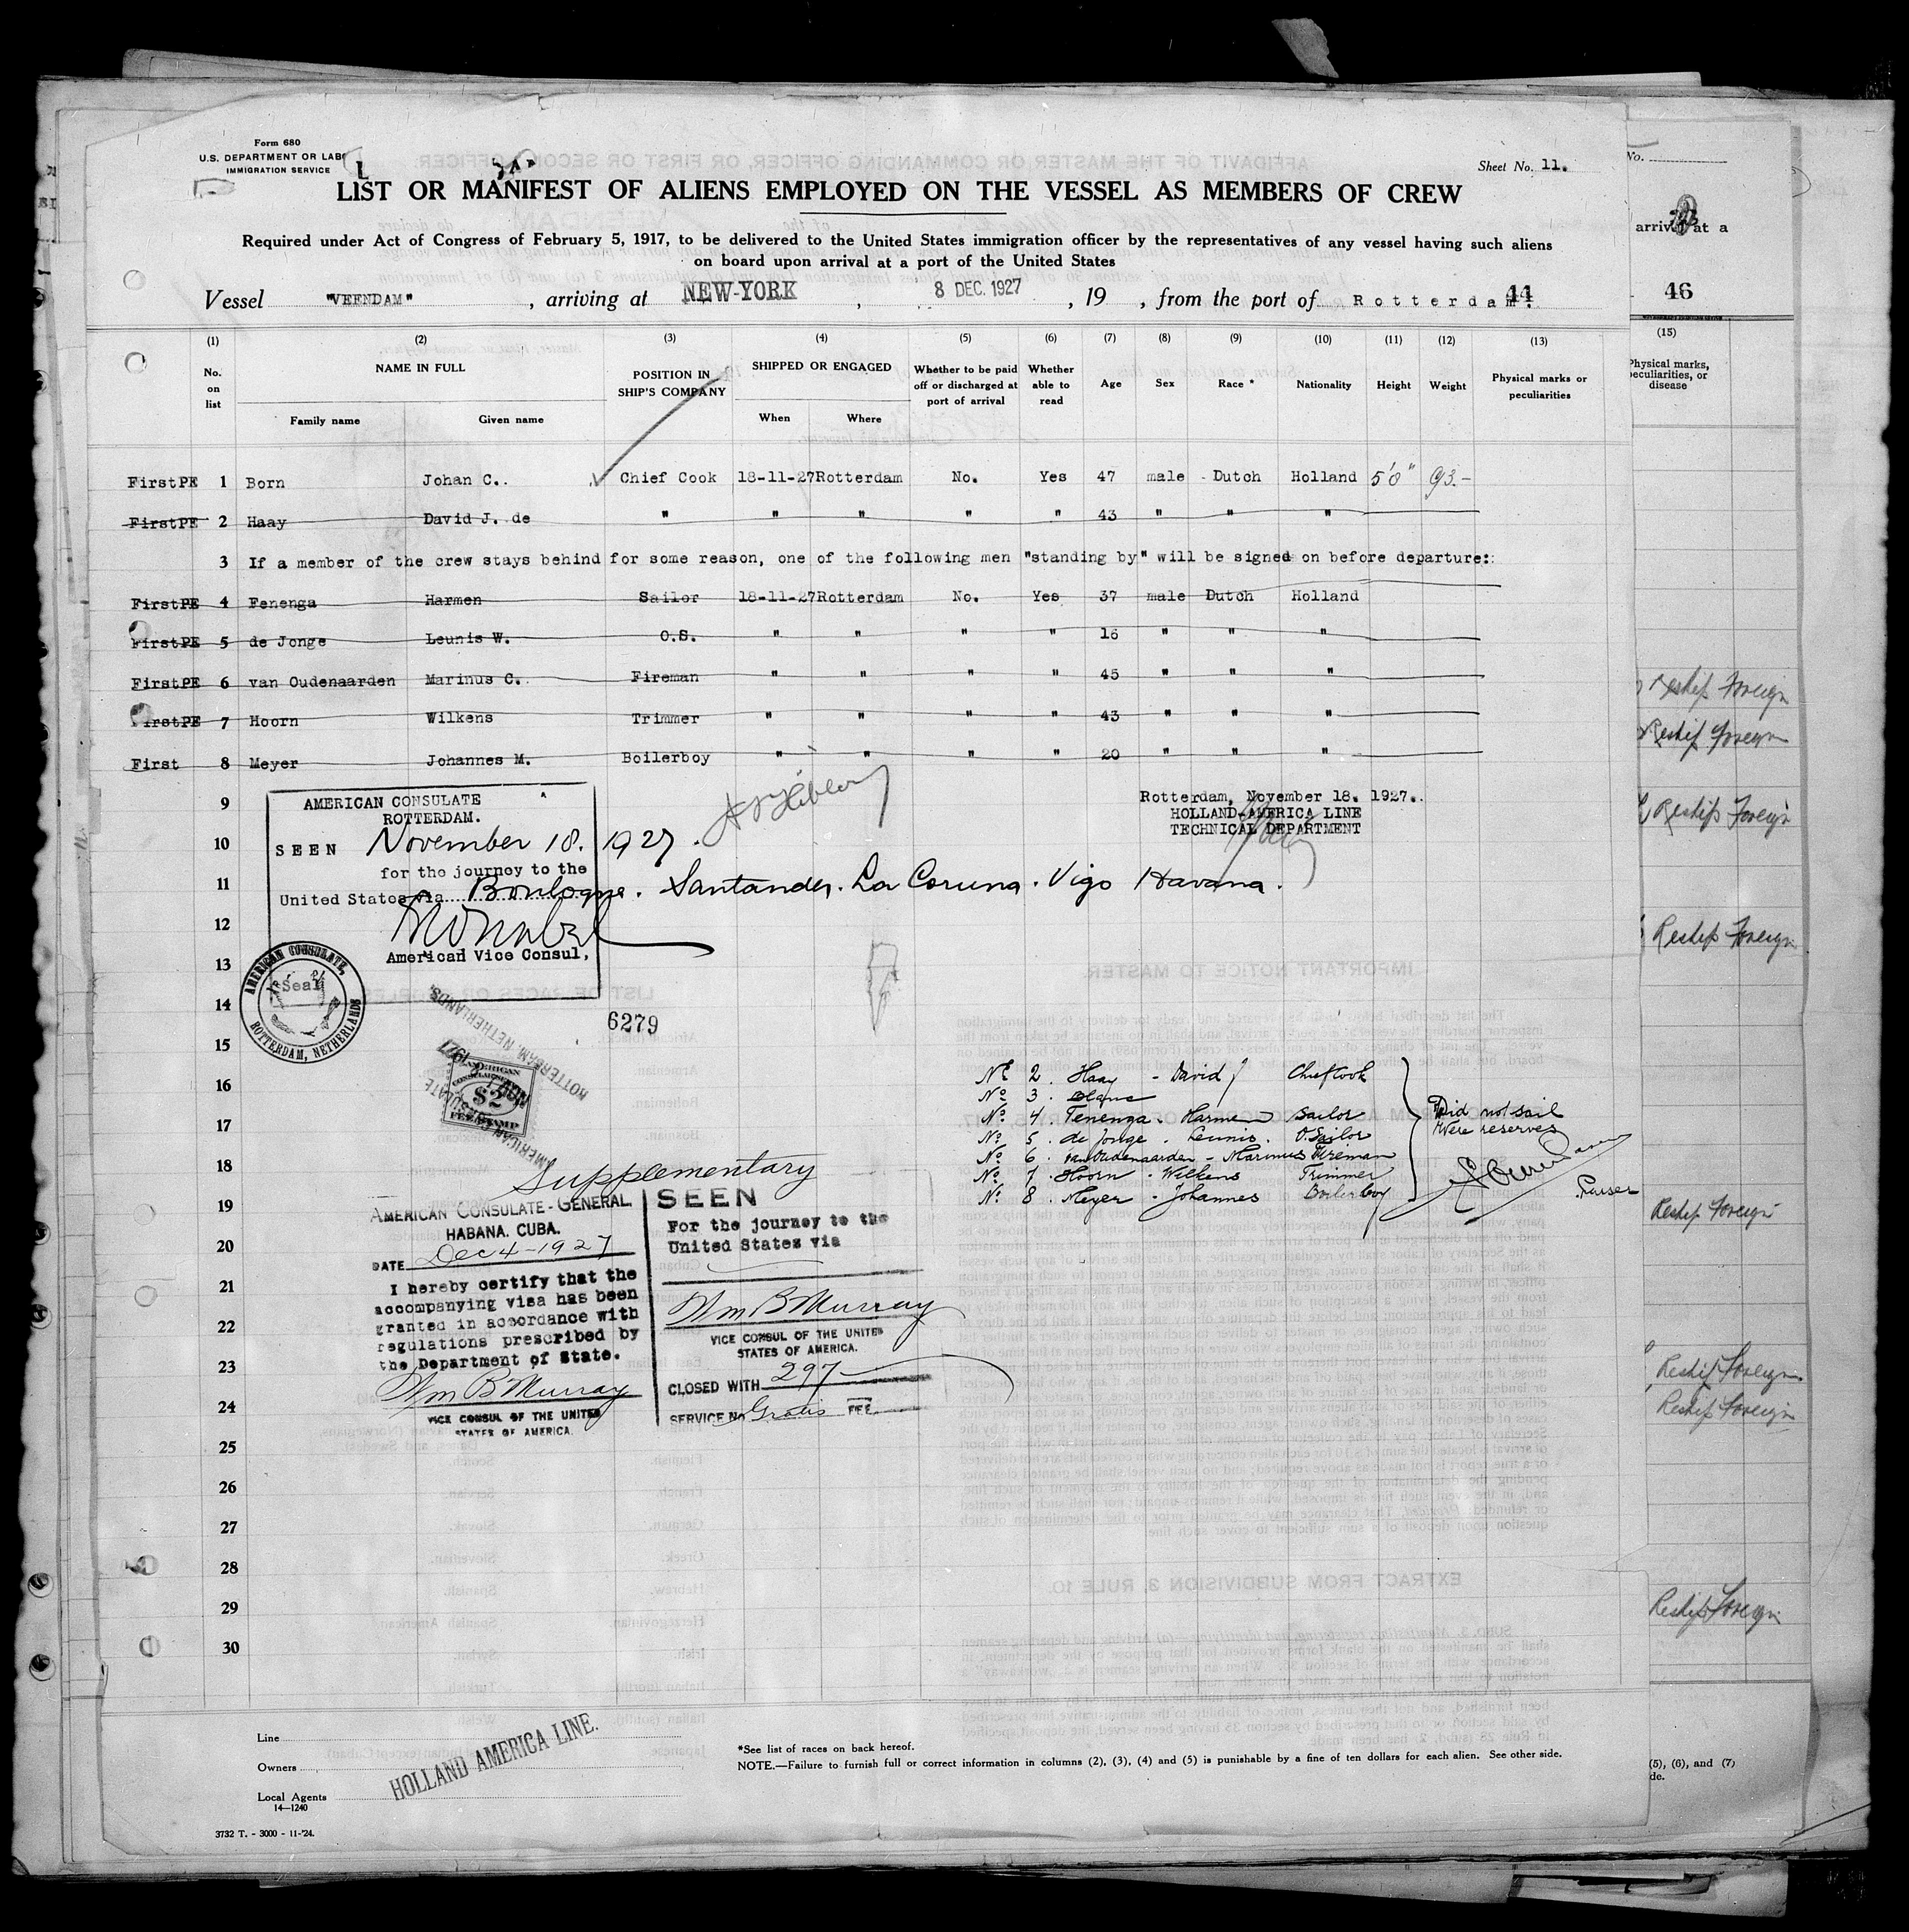 Form 680
U.S. DEPARTMENT OF LAB
IMMIGRATION SERVICE
Sheet No. 11.
LIST OR MANIFEST OF ALIENS EMPLOYED ON THE VESSEL AS MEMBERS OF CREW
Required under Act of Congress of February 5, 1917, to be delivered to the United States immigration officer by the representatives of any vessel having such aliens
on board upon arrival at a port of the United States
Vessel "VEENDAM", arriving at NEW-YORK, 8 DEC. 1927, 19 , from the port of Rotterdam. 44
(1) (2) (3) (4) (5) (6) (7) (8) (9) (10) (11) (12) (13)
No. on list
NAME IN FULL
Family name Given name
POSITION IN SHIP'S COMPANY
SHIPPED OR ENGAGED
When Where
Whether to be paid off or discharged at port of arrival
Whether able to read
Age
Sex
Race *
Nationality
Height
Weight
Physical marks or peculiarities
FirstPE 1 Born Johan C. Chief Cook 18-11-27 Rotterdam No. Yes 47 male Dutch Holland 5'8" 93.-
FirstPE 2 Haay David J. de " " " " " 43 " " "
3 If a member of the crew stays behind for some reason, one of the following men "standing by" will be signed on before departure:
FirstPE 4 Fenenga Harmen Sailor 18-11-27 Rotterdam No. Yes 37 male Dutch Holland
FirstPE 5 de Jonge Leunis W. O.S. " " " " 16 " " "
FirstPE 6 van Oudenaarden Marinus C. Fireman " " " " 45 " " "
FirstPE 7 Hoorn Wilkens Trimmer " " " " 43 " " "
First 8 Meyer Johannes M. Boilerboy " " " " 20 " " "
9
10
11
12
13
14
15
16
17
18
19
20
21
22
23
24
25
26
27
28
29
30
AMERICAN CONSULATE
ROTTERDAM.
SEEN November 18. 1927.
for the journey to the
United States via Boulogne. Santander. La Coruna. Vigo Havana.
American Vice Consul,
AMERICAN CONSULATE, ROTTERDAM, NETHERLANDS
Seal
Rotterdam, November 18. 1927.
HOLLAND-AMERICA LINE
TECHNICAL DEPARTMENT
6279
AMERICAN CONSULATE ROTTERDAM, NETHERLANDS
$2
FEE STAMP
No 2. Haay - David J Chief Cook
No 3.
No 4. Fenenga. Harmen Sailor
No 5. de Jonge. Leunis. O.Sailor
No 6. van Oudenaarden - Marinus Fireman
No 7. Hoorn. Wilkens Trimmer
No 8. Meyer. Johannes Boilerboy
Did not sail
Were reserves
Purser
Supplementary
AMERICAN CONSULATE-GENERAL.
HABANA. CUBA.
DATE Dec 4-1927
I hereby certify that the
accompanying visa has been
granted in accordance with
regulations prescribed by
the Department of State.
Wm B Murray
VICE CONSUL OF THE UNITED
STATES OF AMERICA.
SEEN
For the journey to the
United States via
Wm B Murray
VICE CONSUL OF THE UNITED
STATES OF AMERICA.
CLOSED WITH 297
SERVICE No Gratis FEE
Line
Owners
Local Agents
HOLLAND AMERICA LINE.
14—1240
3732 T. - 3000 - 11-'24.
*See list of races on back hereof.
NOTE.—Failure to furnish full or correct information in columns (2), (3), (4) and (5) is punishable by a fine of ten dollars for each alien. See other side.
No.
arrival at a
46
(15)
Physical marks, peculiarities, or disease
Reship Foreign
Reship Foreign
Reship Foreign
Reship Foreign
Reship Foreign
Reship Foreign
Reship Foreign
Reship Foreign
(5), (6), and (7)
de.